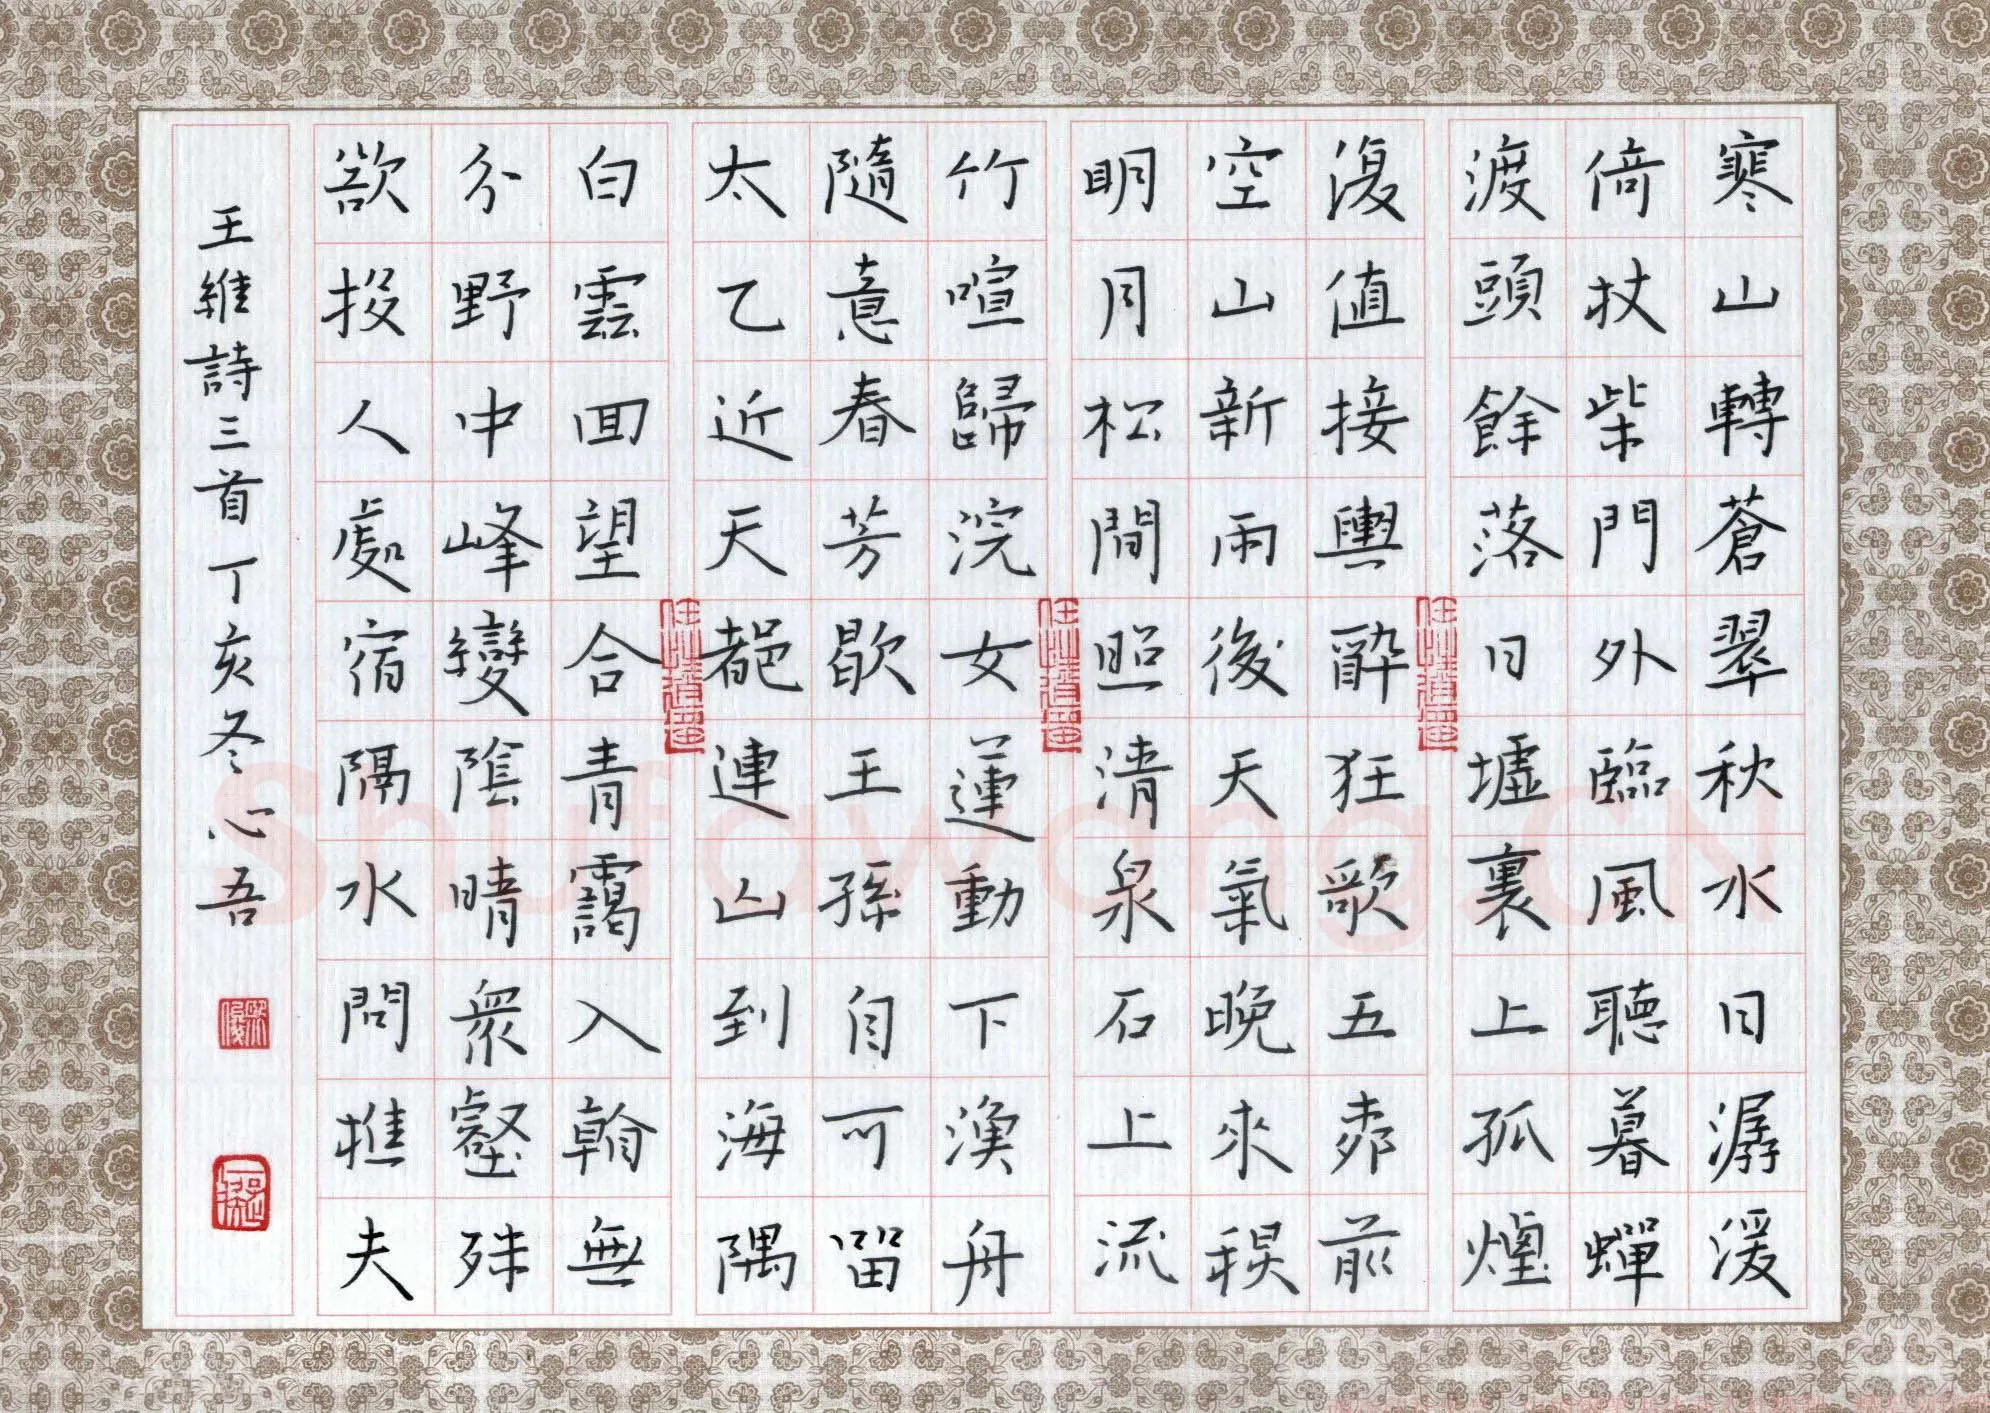 寒山轉蒼翠秋水日潺湲
倚杖柴門外臨風聽暮蟬
渡頭餘落日墟裏上孤煙
復值接輿醉狂歌五柳前
空山新雨後天氣晚來秋
明月松間照清泉石上流
竹喧歸浣女蓮動下漁舟
隨意春芳歇王孫自可留
太乙近天都連山到海隅
白雲回望合青靄入看無
分野中峰變陰晴眾壑殊
欲投人處宿隔水問樵夫
王維詩三首丁亥冬心吾
Shufawang.CN